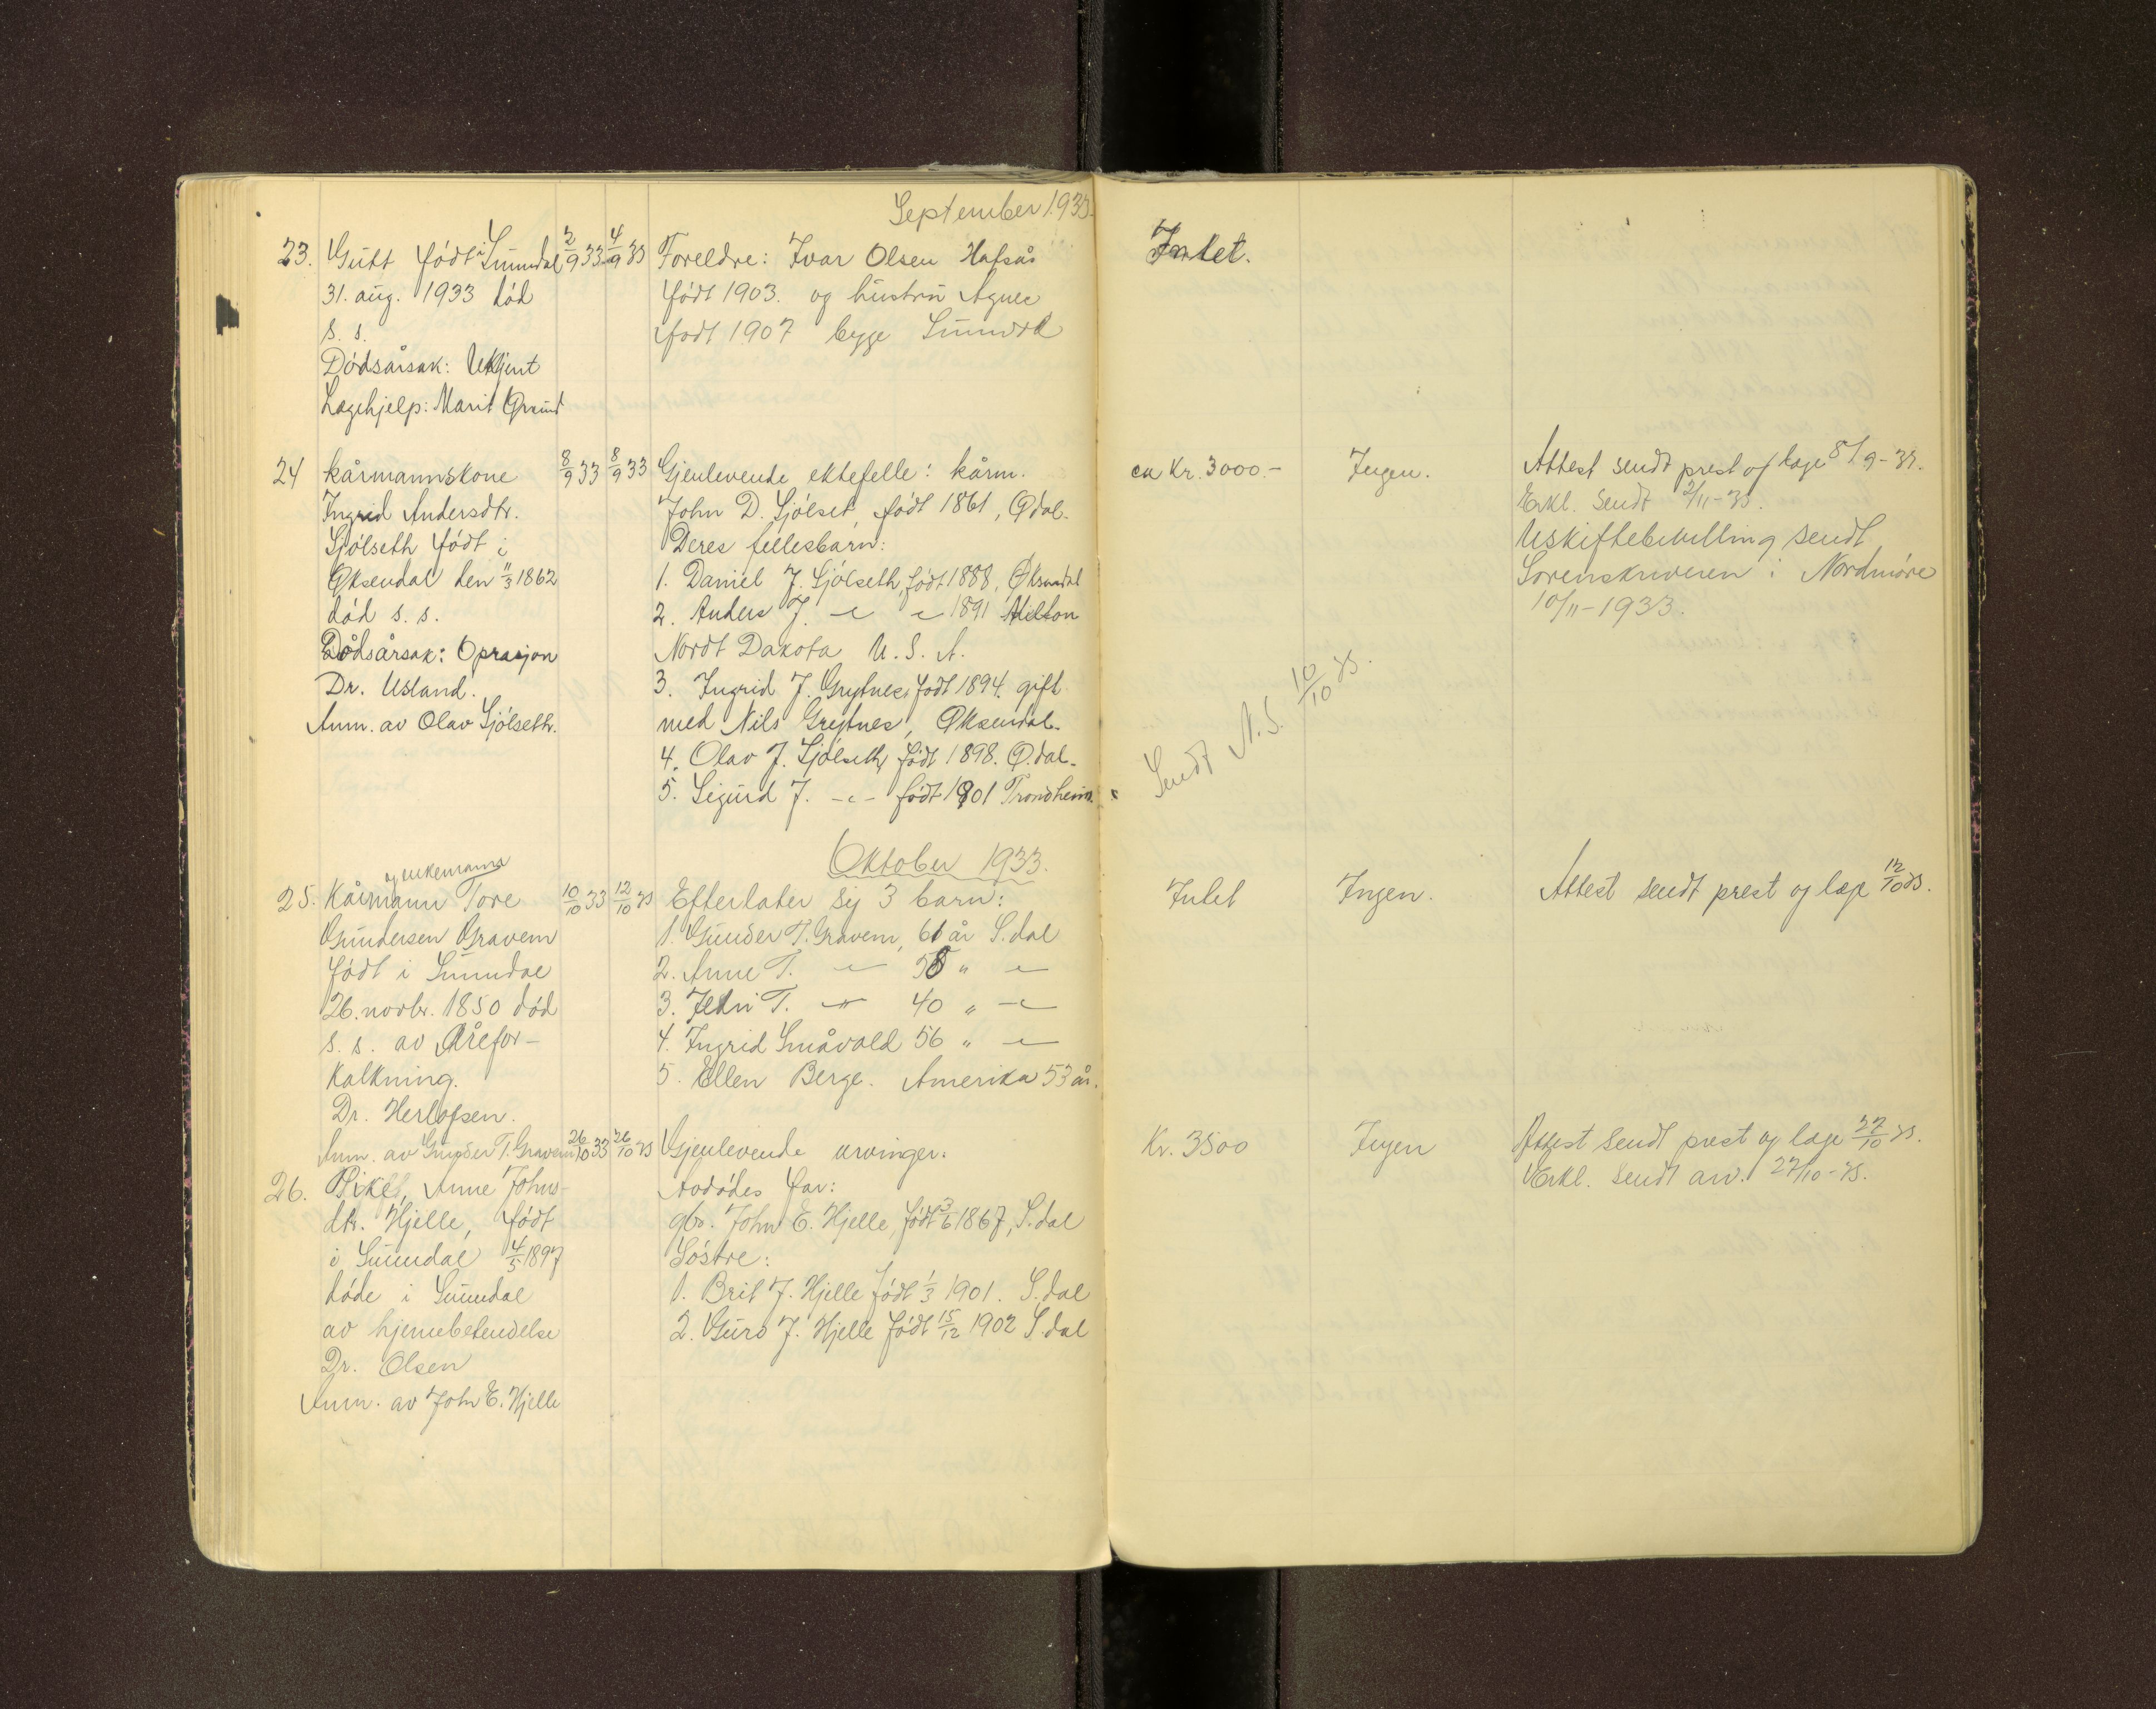 September 1933.
23. Gutt født i Sunndal 2/9 33 4/9 33 Foreldre: Ivar Olsen Hafsås Intet.
31. aug. 1933 død født 1903. og hustru Agnes
s. s. født 1907 begge Sunndal
Dødsårsak: Ukjent
Lægehjelp: Marit Grund
24 Kårmannskone 8/9 33 8/9 33 Gjenlevende ektefelle: kårm. ca Kr. 3000.- Ingen. Attest sendt prest og læge 8/9-33.
Ingrid Andersdtr. John D. Sjølset, født 1861, Ødal. Erkl. sendt 2/11-33.
Sjølseth født i Deres fellesbarn: Uskiftebevilling sendt
Øksendal den 11/3 1862 1. Daniel J. Sjølseth, født 1888, Øksendal Sorenskriveren i Nordmøre
død s. s. 2. Anders J. -"- -"- 1891 Hilton 10/11-1933.
Dødsårsak: Oprasjon Nordt Dakota U. S. A.
Dr. Usland. 3. Ingrid J. Grytnes, født 1894. gift
Anm. av Olav Sjølseth. med Nils Grytnes, Øksendal.
4. Olav J. Sjølseth, født 1898. Ø.dal.
5. Sigurd J. -"- født 1901 Trondheim.
Sendt A. S. 10/10 33.
Oktober 1933.
og enkemann
25. Kårmann Tore 10/10 33 12/10 33 Efterlater sig 3 barn: Intet Ingen. Attest sendt prest og læge 12/10 33.
Gundersen Gravem 1. Gunder T. Gravem, 61 år S.dal
født i Sunndal 2. Anne T. -"- 58 " -"-
26. novbr. 1850 død 3. T. -"- 40 " -"-
s. s. av Årefor- 4. Ingrid Småvold 56 " -"-
kalkning. 5. Ellen Berge. Amerika 53 år.
Dr. Herlofsen.
Anm. av Gunder T. Gravem 26/10 33 26/10 33 Gjenlevende arvinger: Kr. 3500 Ingen Attest sendt prest og læge 27/10 33.
26. Pike, Anne Johns- Avdødes far: Erkl. sendt arv. 27/10-33.
dtr. Hjelle, født gbr. John E. Hjelle, født 3/6 1867, S.dal
i Sunndal 4/5 1897 Søstre:
døde i Sunndal 1. Brit J. Hjelle født 1/3 1901. S.dal
av hjernebetendelse 2. Guro J. Hjelle født 15/12 1902 S.dal
Dr. Olsen
Anm. av John E. Hjelle